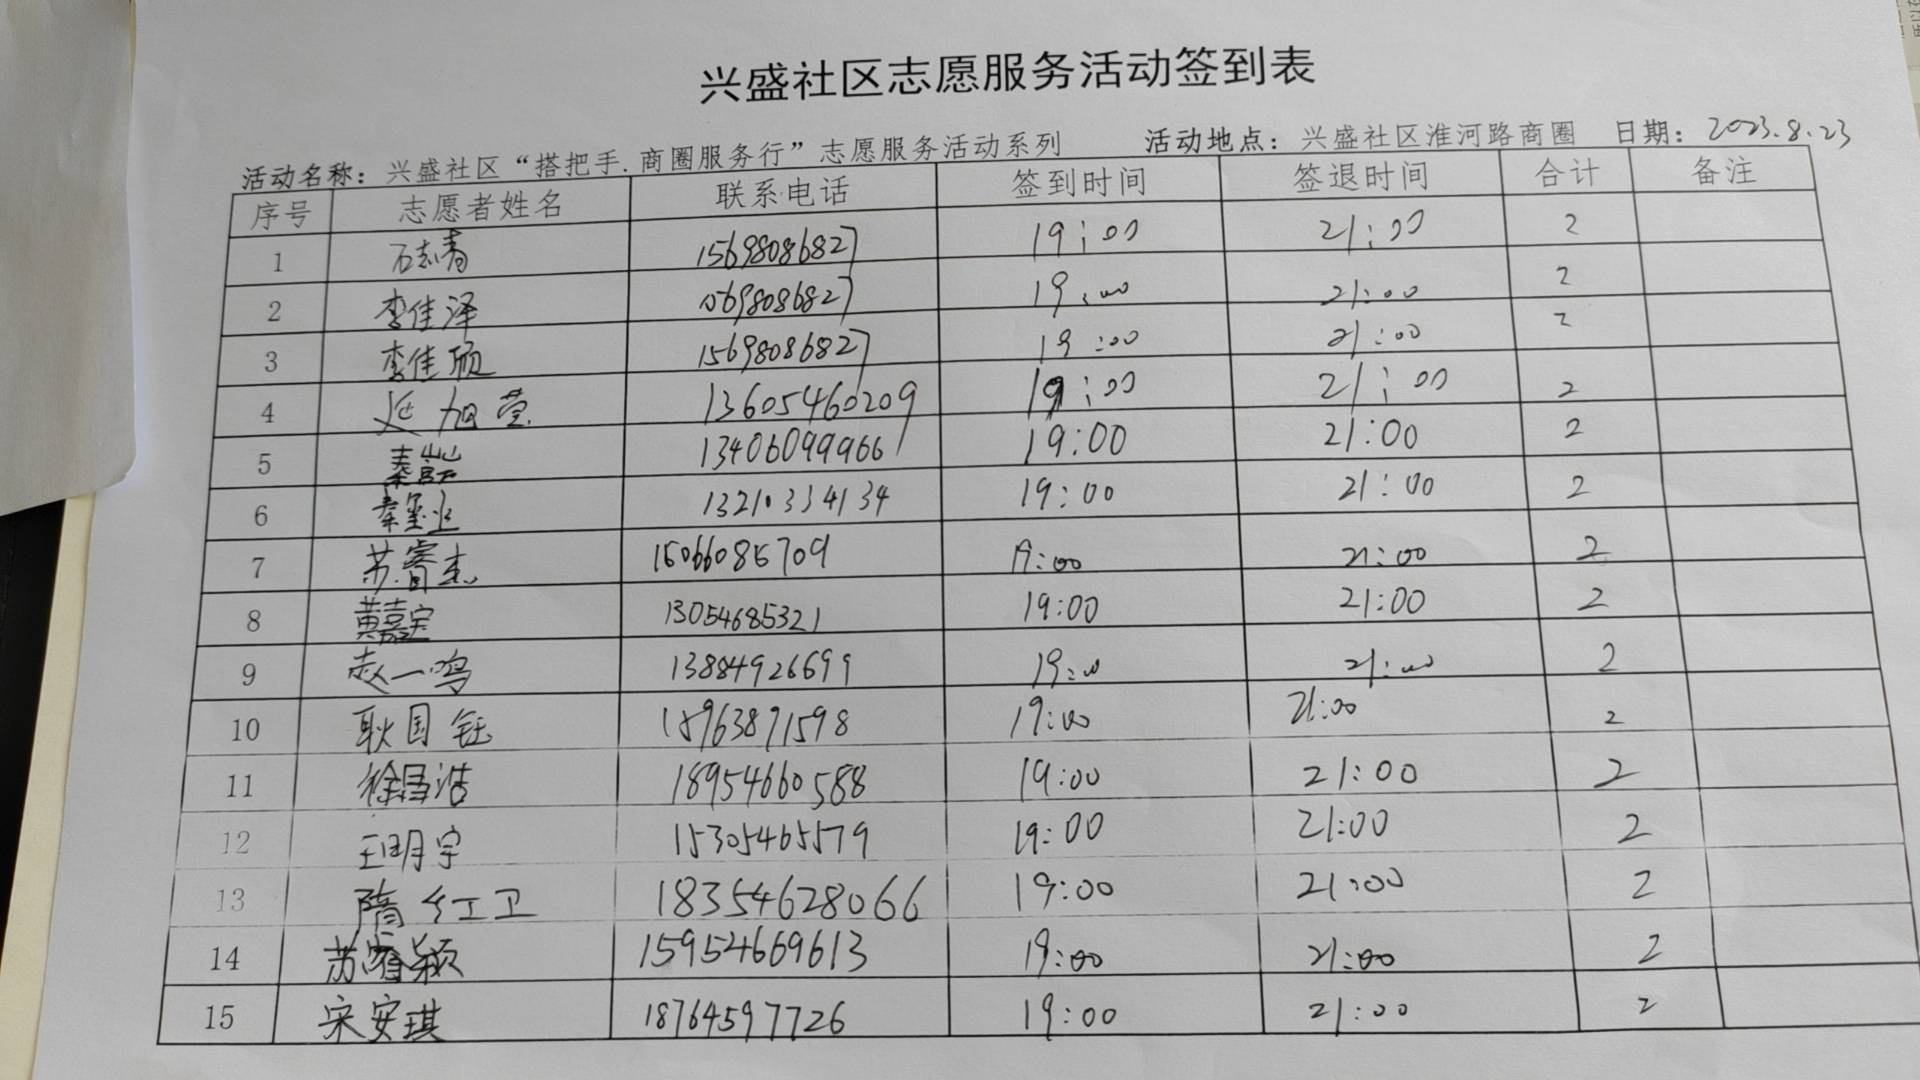 兴盛社区志愿服务活动签到表
活动名称：兴盛社区“搭把手.商圈服务行”志愿服务活动系列 活动地点：兴盛社区淮河路商圈 日期：2023.8.23
序号 志愿者姓名 联系电话 签到时间 签退时间 合计 备注
1 石志青 15698086827 19:00 21:00 2
2 李佳泽 15698086827 19:00 21:00 2
3 李佳硕 15698086827 19:00 21:00 2
4 延旭莹 13605460209 19:00 21:00 2
5 秦 13406099966 19:00 21:00 2
6 秦 13210334134 19:00 21:00 2
7 苏睿杰 15066085709 19:00 21:00 2
8 黄嘉宝 13054685321 19:00 21:00 2
9 赵一鸣 13884926699 19:00 21:00 2
10 耿国钰 15963871598 19:00 21:00 2
11 徐昌浩 18954660588 19:00 21:00 2
12 王明宇 15305465579 19:00 21:00 2
13 隋红卫 18354628066 19:00 21:00 2
14 苏睿颖 15954669613 19:00 21:00 2
15 宋安琪 18764597726 19:00 21:00 2